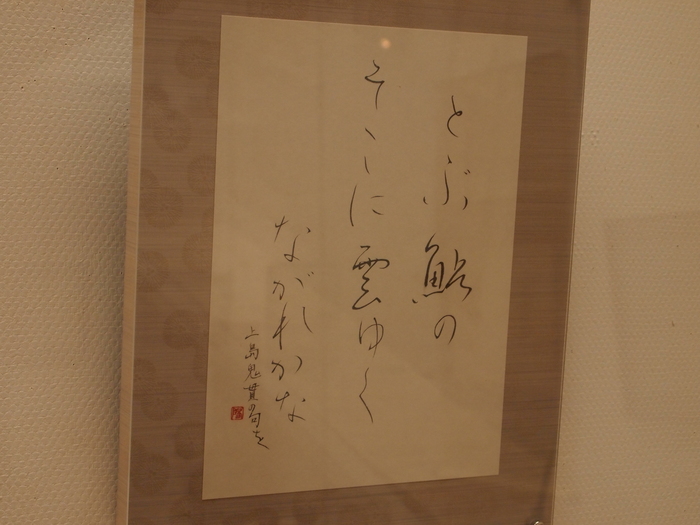 とぶ鮎の
そこに雲ゆく
ながれかな
上島鬼貫の句を